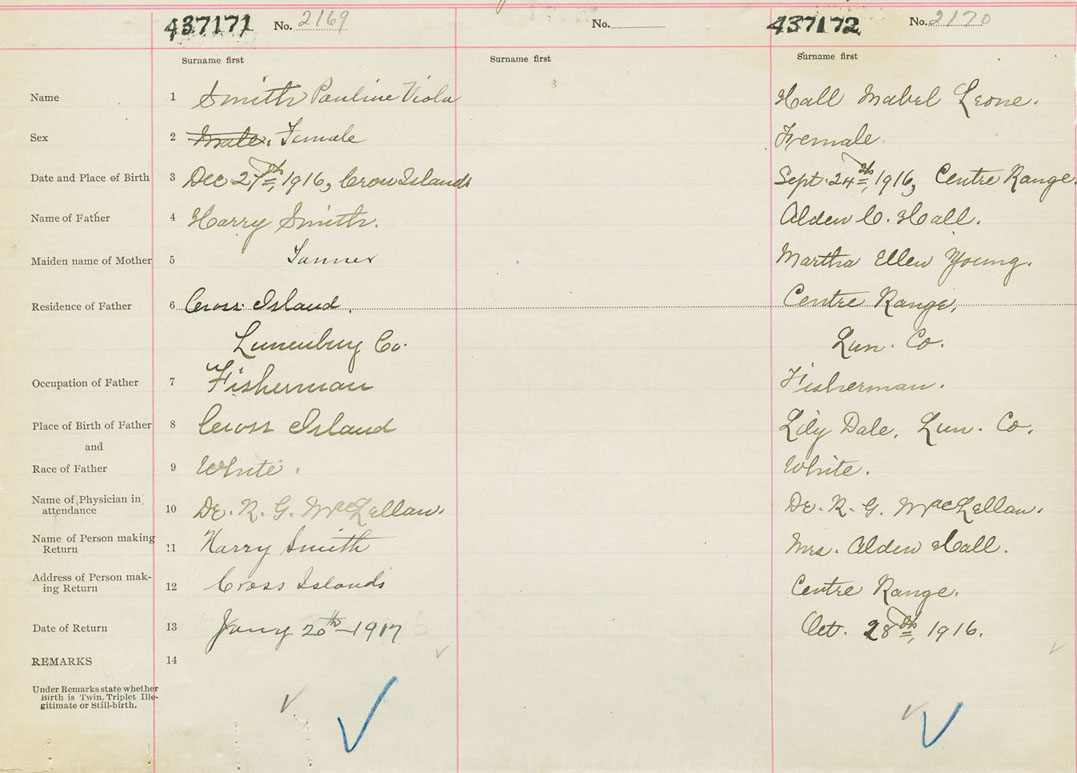 437171 No. 2169 No. 437172 No. 2170
Surname first Surname first Surname first
Name 1 Smith Pauline Viola Hall Mabel Leone.
Sex 2 Male. Female Female.
Date and Place of Birth 3 Dec 27th, 1916, Cross Islands Sept 24th, 1916, Centre Range.
Name of Father 4 Harry Smith. Alden C. Hall.
Maiden name of Mother 5 Tanner Martha Ellen Young.
Residence of Father 6 Cross Island. Centre Range,
Lunenburg Co. Lun. Co.
Occupation of Father 7 Fisherman Fisherman.
Place of Birth of Father 8 Cross Island Lily Dale, Lun. Co.
and
Race of Father 9 White. White.
Name of Physician in
attendance 10 Dr. R. G. McLellan. Dr. R. G. McLellan.
Name of Person making
Return 11 Harry Smith Mrs. Alden Hall.
Address of Person mak-
ing Return 12 Cross Islands Centre Range.
Date of Return 13 Jany 20th-1917 Oct. 28th, 1916.
REMARKS 14
Under Remarks state whether
Birth is Twin, Triplet Ille-
gitimate or Still-birth.